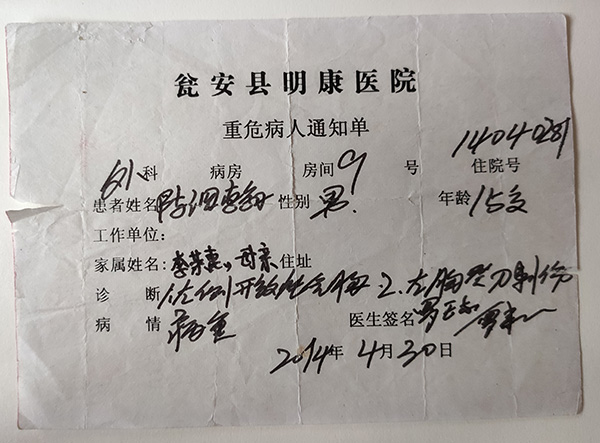 瓮安县明康医院
重危病人通知单
外科 病房 房间 9 号 14040281 住院号
患者姓名 陈泗翰 性别 男. 年龄 15岁
工作单位:
家属姓名: 李荣惠,母亲 住址
诊断 1.左侧开放性气胸 2.左胸壁刀刺伤
病情 病重 医生签名
2014年4月30日